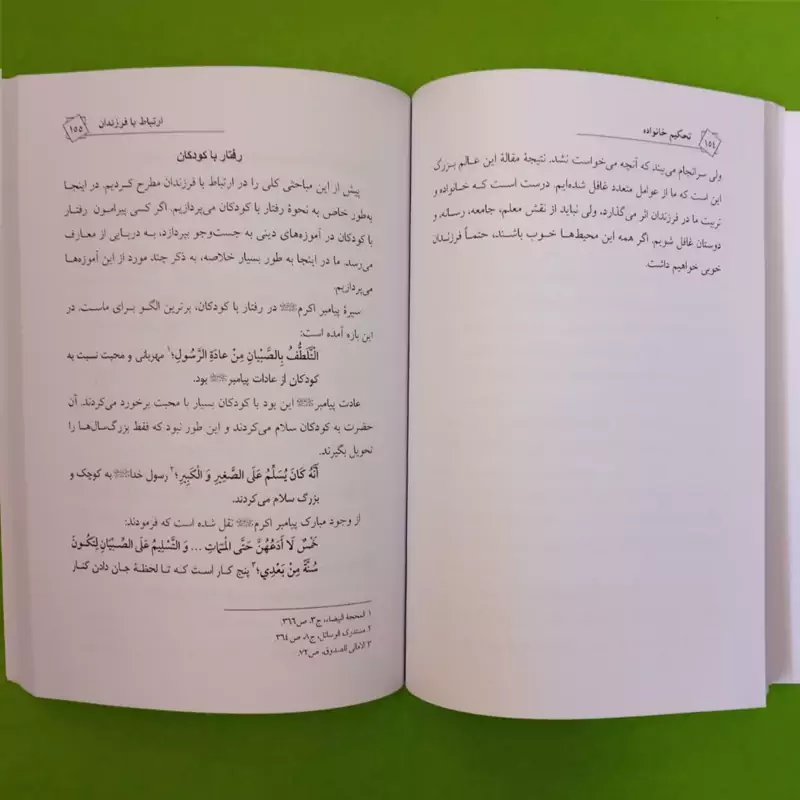 ۱۵۴ تحکیم خانواده
ولی سرانجام می‌بیند که آنچه می‌خواست نشد. نتیجهٔ مقالهٔ این عالم بزرگ
این است که ما از عوامل متعدد غافل شده‌ایم. درست است که خانواده و
تربیت ما در فرزندان اثر می‌گذارد، ولی نباید از نقش معلم، جامعه، رسانه، و
دوستان غافل شویم. اگر همه این محیط‌ها خوب باشند، حتماً فرزندان
خوبی خواهیم داشت.
ارتباط با فرزندان ۱۵۵
رفتار با کودکان
پیش از این مباحثی کلی را در ارتباط با فرزندان مطرح کردیم. در اینجا
به‌طور خاص به نحوهٔ رفتار با کودکان می‌پردازیم. اگر کسی پیرامون رفتار
با کودکان در آموزه‌های دینی به جست‌وجو بپردازد، به دریایی از معارف
می‌رسد. ما در اینجا به طور بسیار خلاصه، به ذکر چند مورد از این آموزه‌ها
می‌پردازیم.
سیرهٔ پیامبر اکرم در رفتار با کودکان، برترین الگو برای ماست. در
این باره آمده است:
التَّلَطُّفُ بِالصِّبْيَانِ مِنْ عَادَةِ الرَّسُولِ؛۱ مهربانی و محبت نسبت به
کودکان از عادات پیامبر بود.
عادت پیامبر این بود با کودکان بسیار با محبت برخورد می‌کردند. آن
حضرت به کودکان سلام می‌کردند و این طور نبود که فقط بزرگ‌سال‌ها را
تحویل بگیرند.
أَنَّهُ كَانَ يُسَلِّمُ عَلَى الصَّغِيرِ وَ الْكَبِيرِ؛۲ رسول خدا به کوچک و
بزرگ سلام می‌کردند.
از وجود مبارک پیامبر اکرم نقل شده است که فرمودند:
خَمْسٌ لَا أَدَعُهُنَّ حَتَّى الْمَمَاتِ ... وَ التَّسْلِيمُ عَلَى الصِّبْيَانِ لِتَكُونَ
سُنَّةً مِنْ بَعْدِي؛۳ پنج کار است که تا لحظهٔ جان دادن کنار
۱. المحجة البیضاء، ج۳، ص۳۶۶.
۲. مستدرک الوسائل، ج۸، ص۳۶۴.
۳. الامالی للصدوق، ص۷۲.